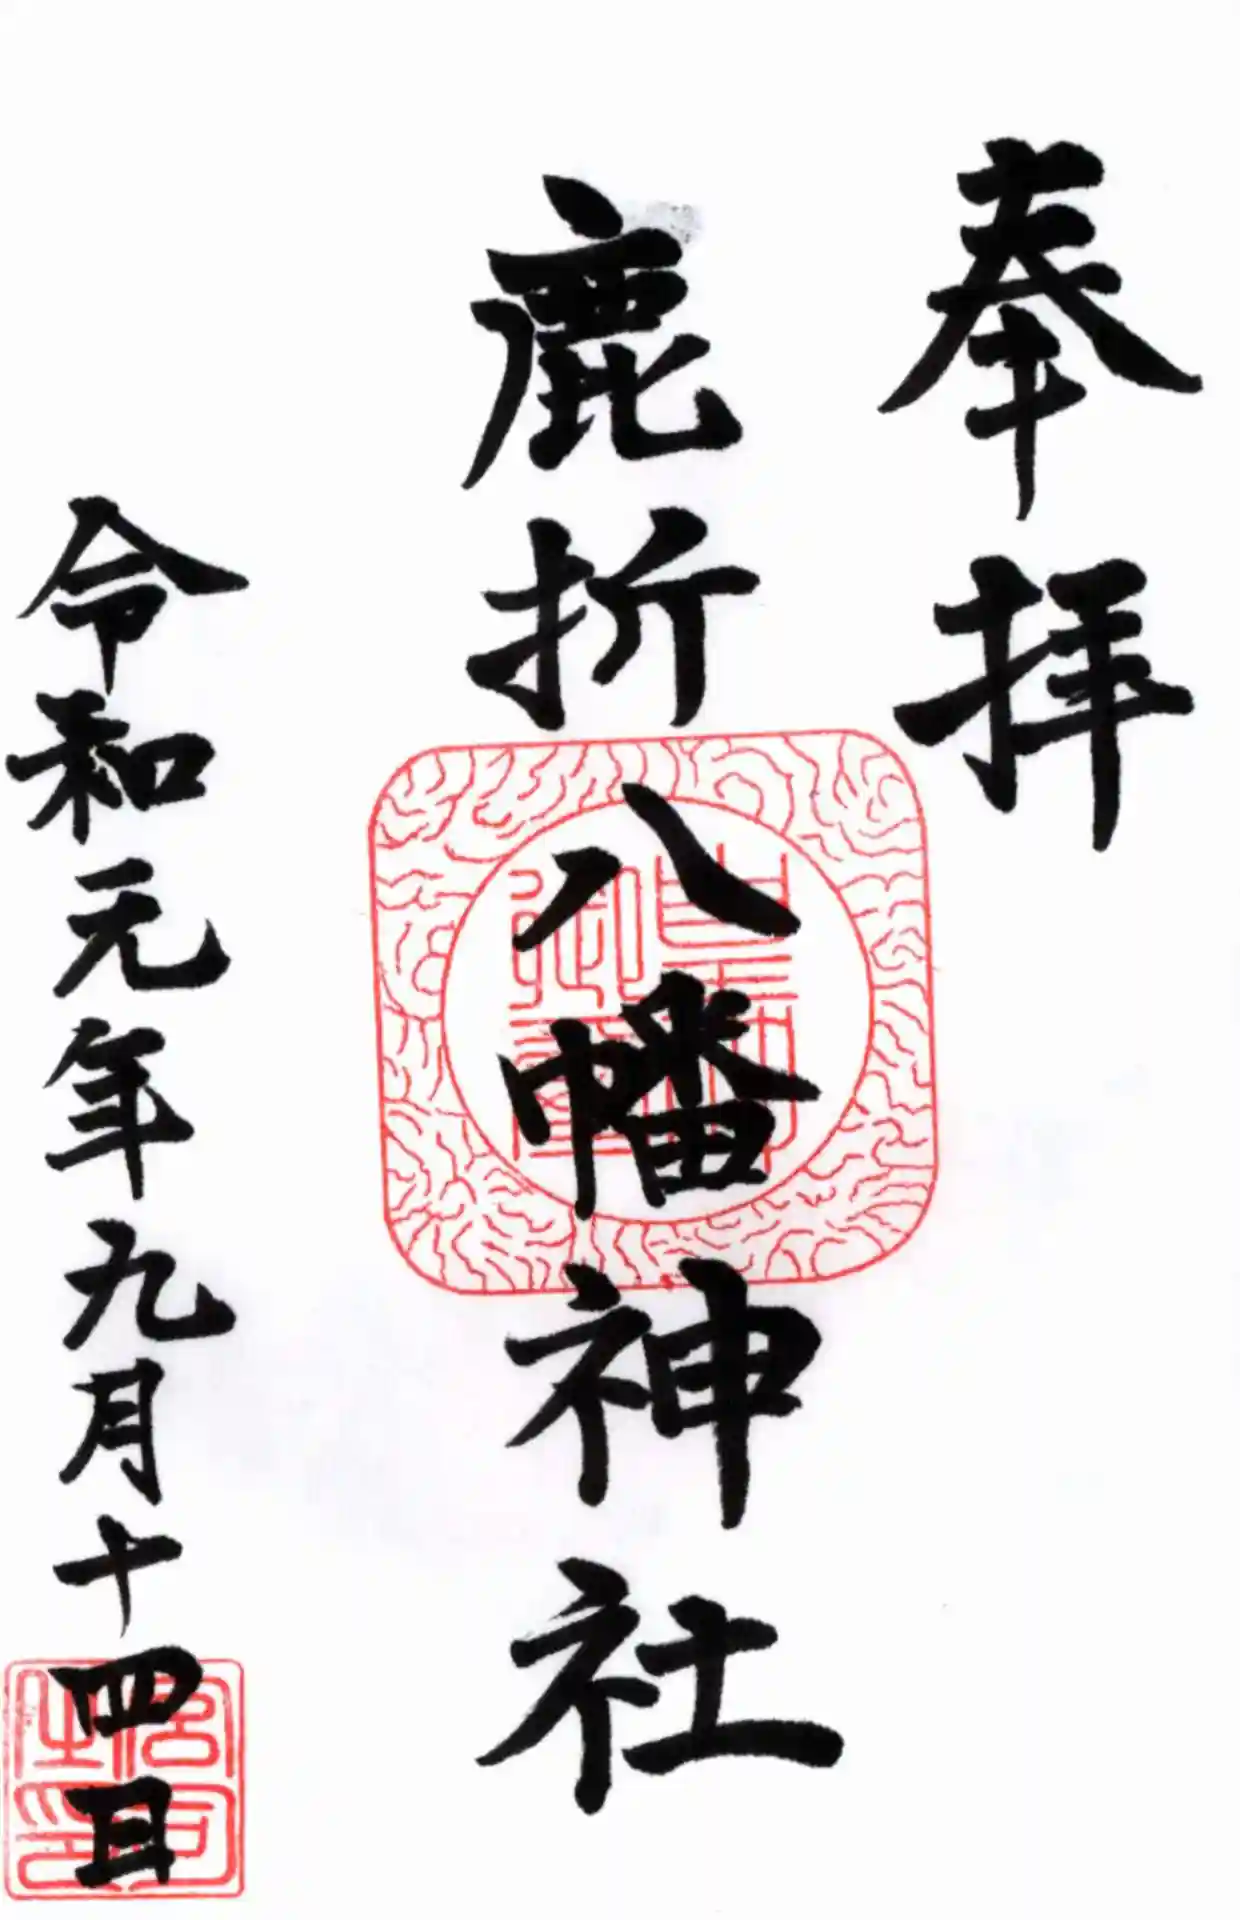 奉拝
鹿折八幡神社
令和元年九月十四日
宮司之印